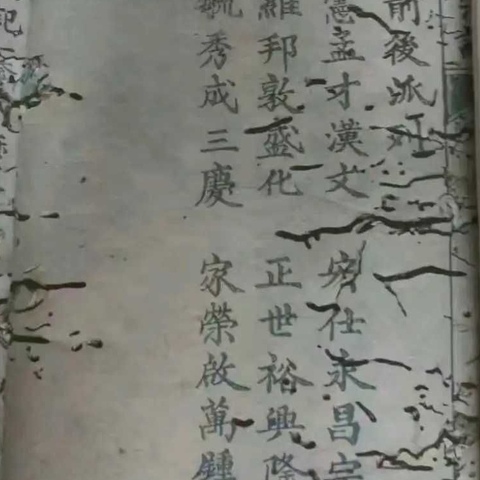 前後派列
憲孟才漢文 仕永昌宗
邦敦盛化 正世裕興隆
毓秀成三慶 家榮啟萬鍾